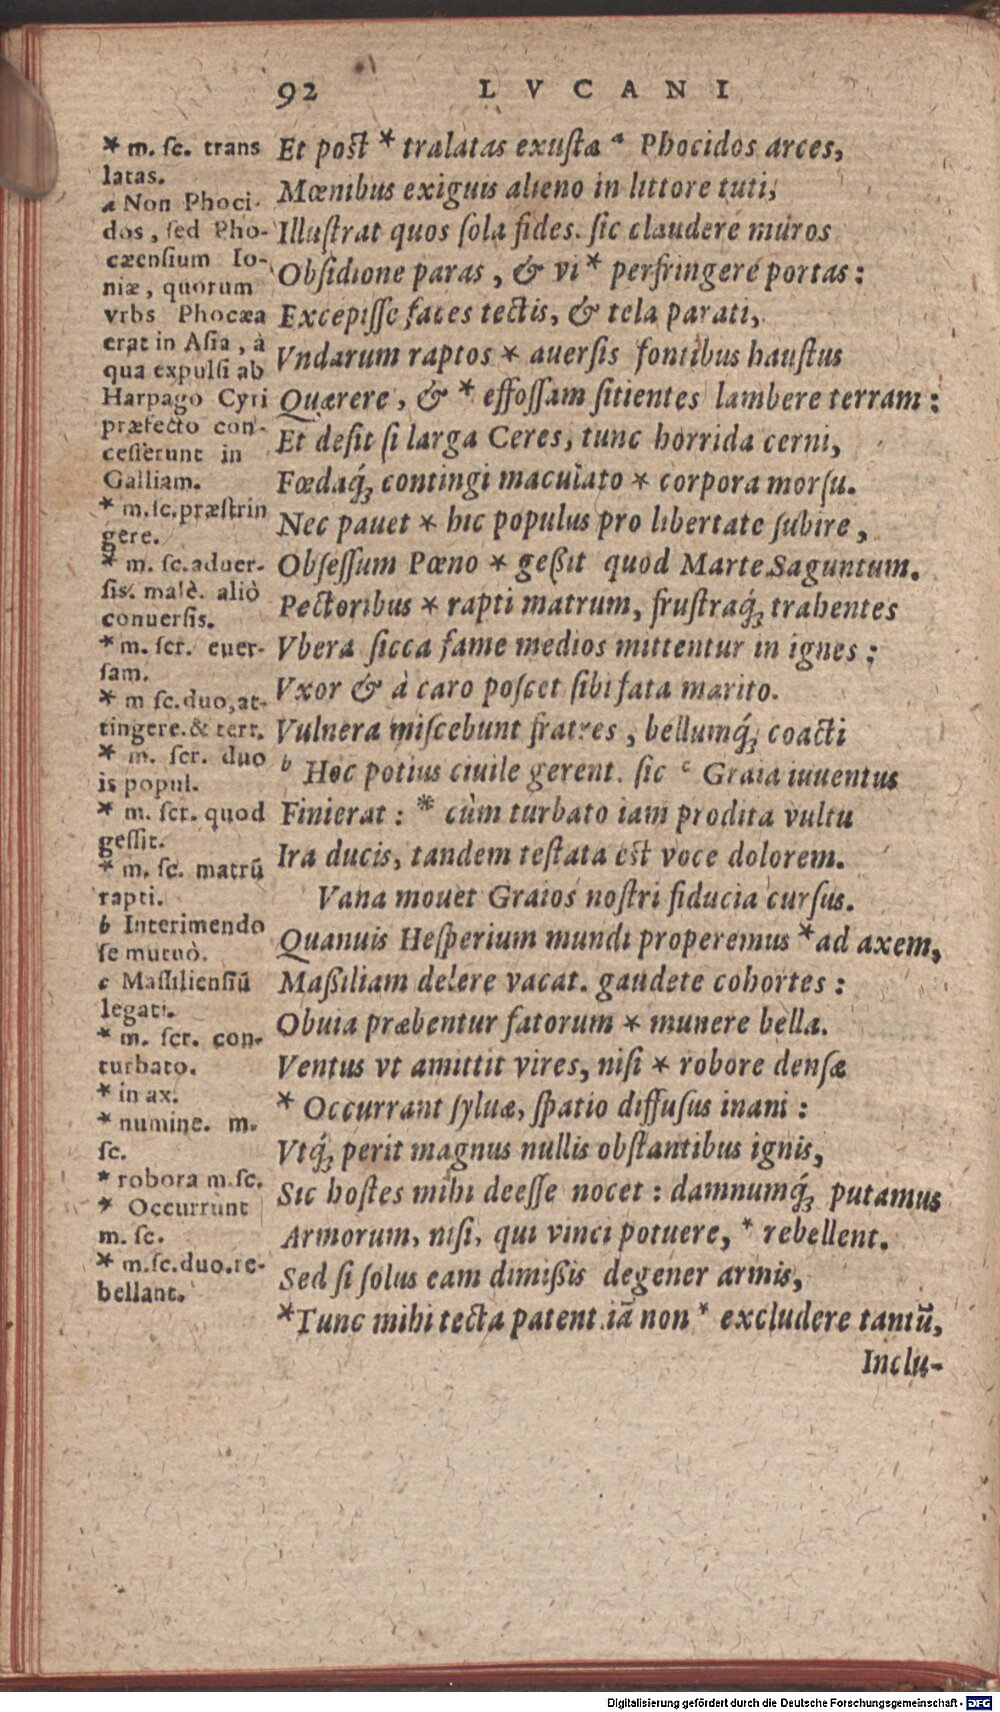 92 LVCANI
* m. sc. trans
latas.
a Non Phoci-
dos, sed Pho-
cæensium Io-
niæ, quorum
vrbs Phocæa
erat in Asia, à
qua expulsi ab
Harpago Cyri
præfecto con-
cesserunt in
Galliam.
* m.sc.præstrin
gere.
* m. sc.aduer-
sis. malè. aliò
conuersis.
* m. scr. euer-
sam.
* m sc.duo,at-
tingere.& terr.
* m. scr. duo
is popul.
* m. scr. quod
gessit.
* m. sc. matrũ
rapti.
b Interimendo
se mutuò.
c Massiliensiũ
legati.
* m. scr. con-
turbato.
* in ax.
* numine. m.
sc.
* robora m.sc.
* Occurrunt
m. sc.
* m.sc.duo.re-
bellant.
Et post * tralatas exustæ a Phocidos arces,
Mœnibus exiguis alieno in littore tuti,
Illustrat quos sola fides. sic claudere muros
Obsidione paras, & vi * perfringere portas:
Excepisse faces tectis, & tela parati,
Vndarum raptos * auersis fontibus haustus
Quærere, & * effossam sitientes lambere terram:
Et desit si larga Ceres, tunc horrida cerni,
Fœdaq́; contingi maculato * corpora morsu.
Nec pauet * hic populus pro libertate subire,
Obsessum Pœno * geßit quod Marte Saguntum.
Pectoribus * rapti matrum, frustraq́; trahentes
Vbera sicca fame medios mittentur in ignes:
Vxor & à caro poscet sibi fata marito.
Vulnera miscebunt fratres, bellumq́; coacti
b Hoc potius ciuile gerent. sic c Graia iuuentus
Finierat: * cùm turbato iam prodita vultu
Ira ducis, tandem testata est voce dolorem.
Vana mouet Graios nostri fiducia cursus.
Quanuis Hesperium mundi properemus * ad axem,
Maßiliam delere vacat. gaudete cohortes:
Obuia præbentur fatorum * munere bella.
Ventus vt amittit vires, nisi * robore densæ
* Occurrant syluæ, spatio diffusus inani:
Vtq́; perit magnus nullis obstantibus ignis,
Sic hostes mihi deesse nocet: damnumq́; putamus
Armorum, nisi, qui vinci potuere, * rebellent.
Sed si solus eam dimißis degener armis,
*Tunc mihi tecta patent.iã non * excludere tantũ,
Inclu-
Digitalisierung gefördert durch die Deutsche Forschungsgemeinschaft - DFG